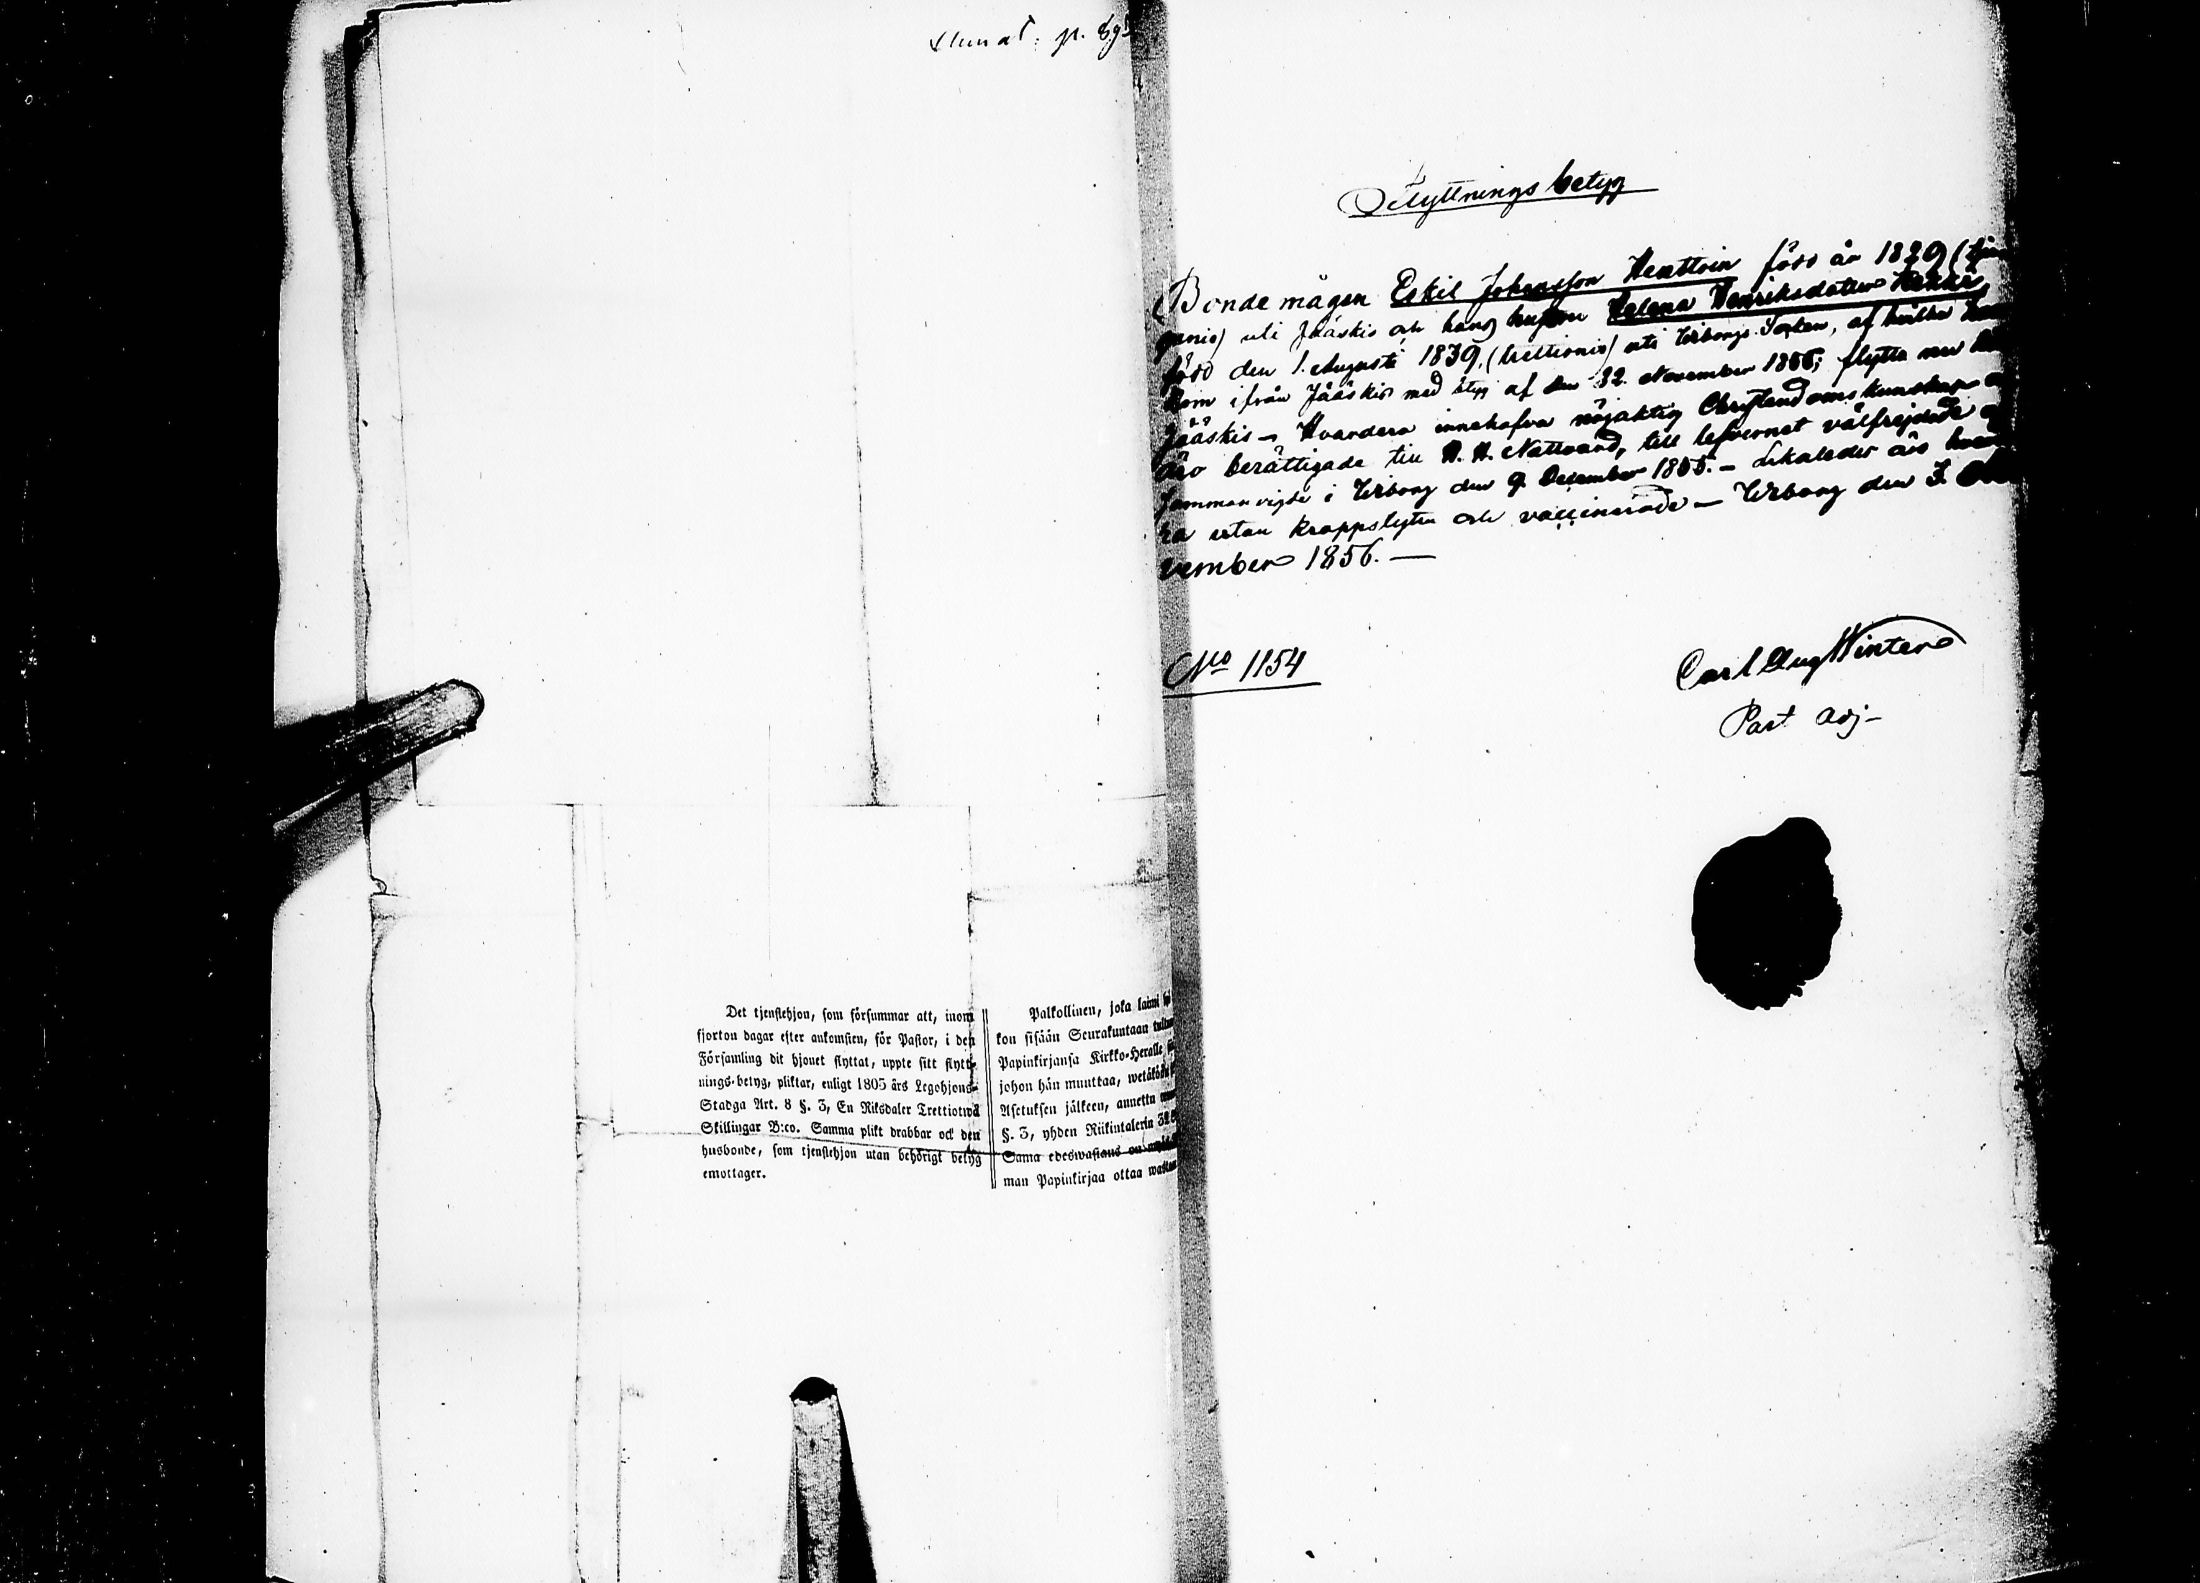 p. 89
Flyttningsbetyg
Bondemågen Eskil Johansson Henttoin född år 1829 (tju
gunio) uti Jääskis och hans hustru Helena Henriksdotter
född den 1. Augusti 1839, (trettionio) uti Wiborgs Socken, af hvilka
kom ifrån Jääskis med betyg af den 22. November 1855; flytta nu
Jääskis – Hvardera innehafva nöjaktig Christendomskunskap
äro berättigade till H. H. Nattvard, till lefvernet välfrejdade
sammanvigde i Wiborg den 9. December 1855. – Likaledes äro
ra utan kroppslyten och vaccinerade – Wiborg den 3.
vember 1856. —
No 1154
Carl Aug Winter
Past adj–
Det tjenstehjon, som försummar att, inom
fjorton dagar efter ankomsten, för Pastor, i den
Församling dit hjonet flyttat, uppte sitt flytt-
nings-betyg, pliktar, enligt 1805 års Legohjons-
Stadga Art. 8 §. 3, En Riksdaler Trettiotwå
Skillingar B:co. Samma plikt drabbar ock den
husbonde, som tjenstehjon utan behörigt betyg
emottager.
Palkollinen, joka laimi
kon sisään Seurakuntaan
Papinkirjansa Kirkko-Heralle
johon hän muuttaa,
Asetuksen jälkeen, annettu
§. 3, yhden Riikintalerin 32
Sama edeswastaus on
man Papinkirjaa ottaa